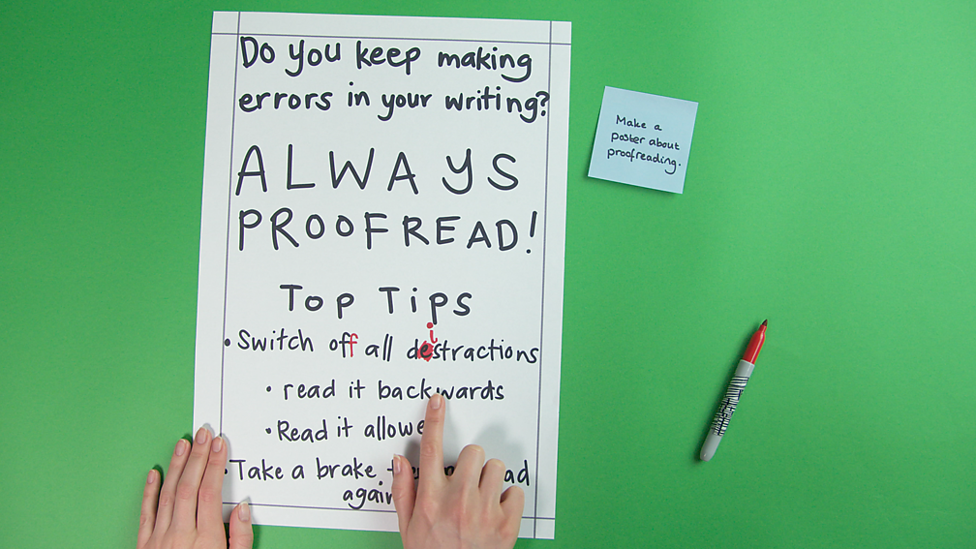 Do you keep making
errors in your writing?
ALWAYS
PROOFREAD!
Top Tips
• Switch off all distractions
• read it backwards
• Read it
• Take a brake
again
Make a
poster about
proofreading.